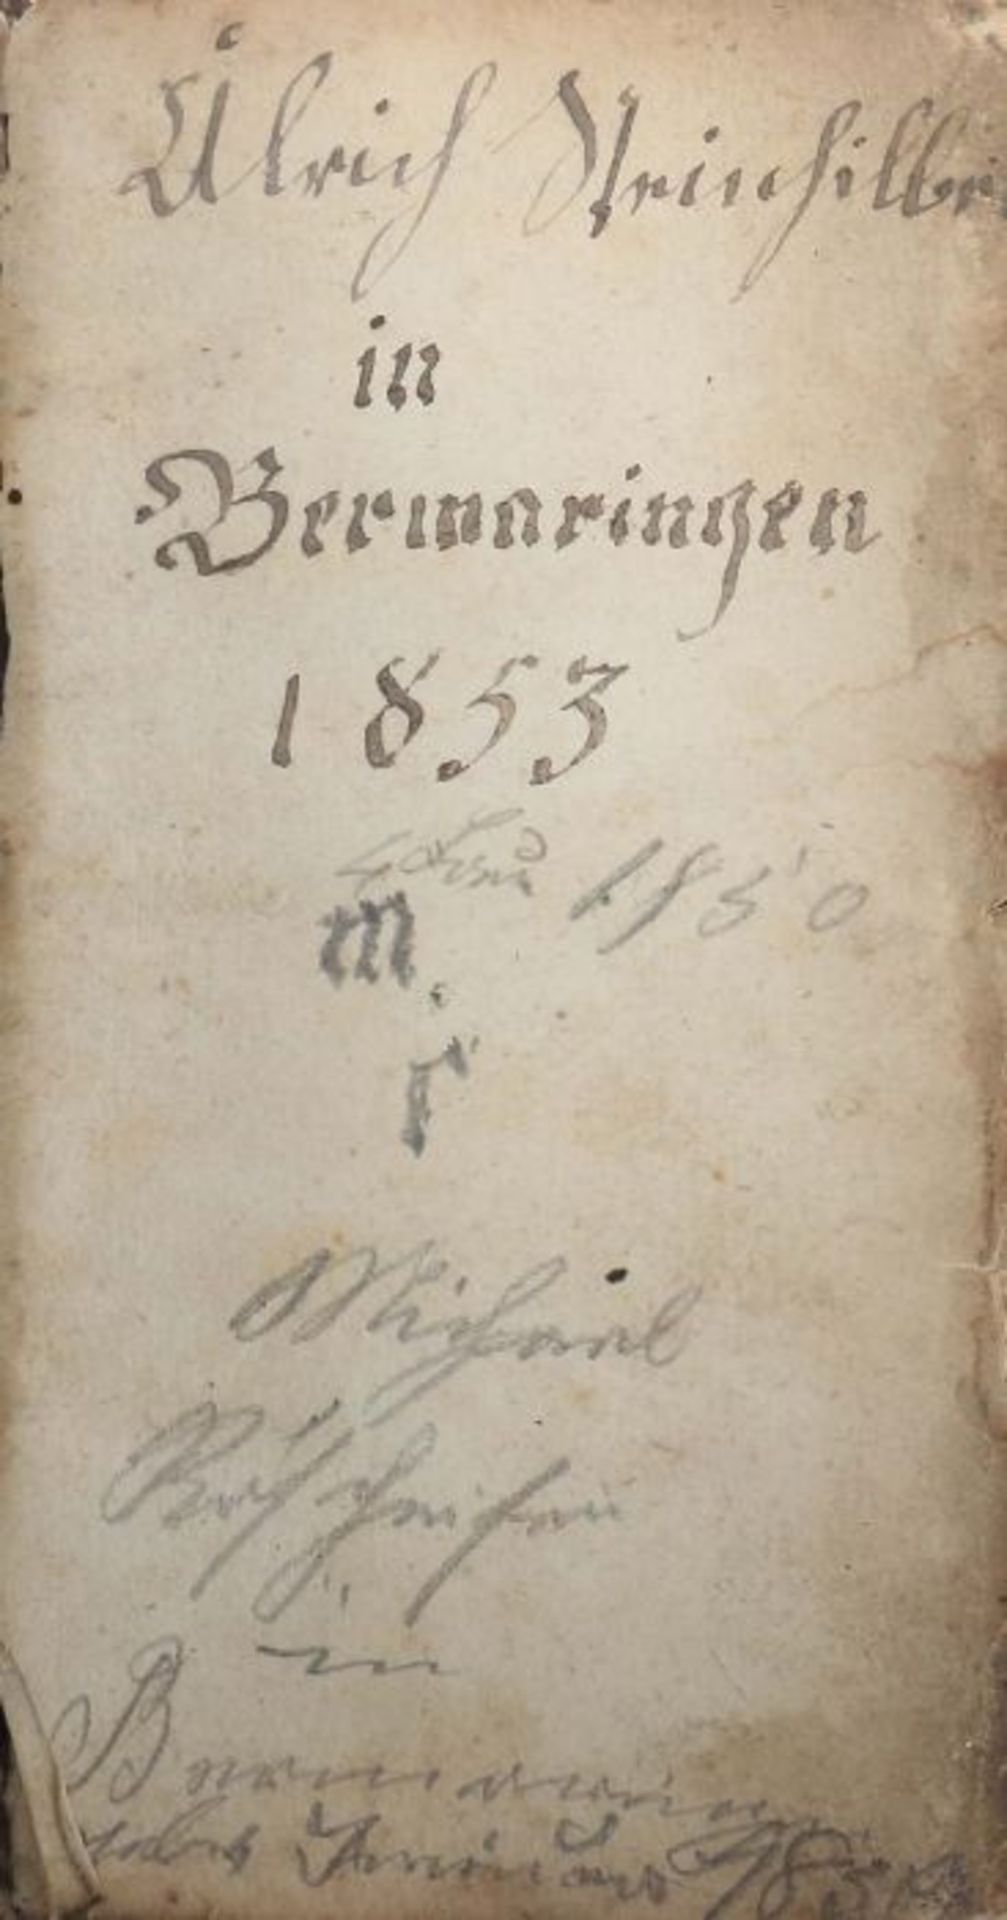 Ulrich Reinhilbe
in
Bermaringen
1853
1850
m.
r
Michael
in
Bermaringen
Januar 185